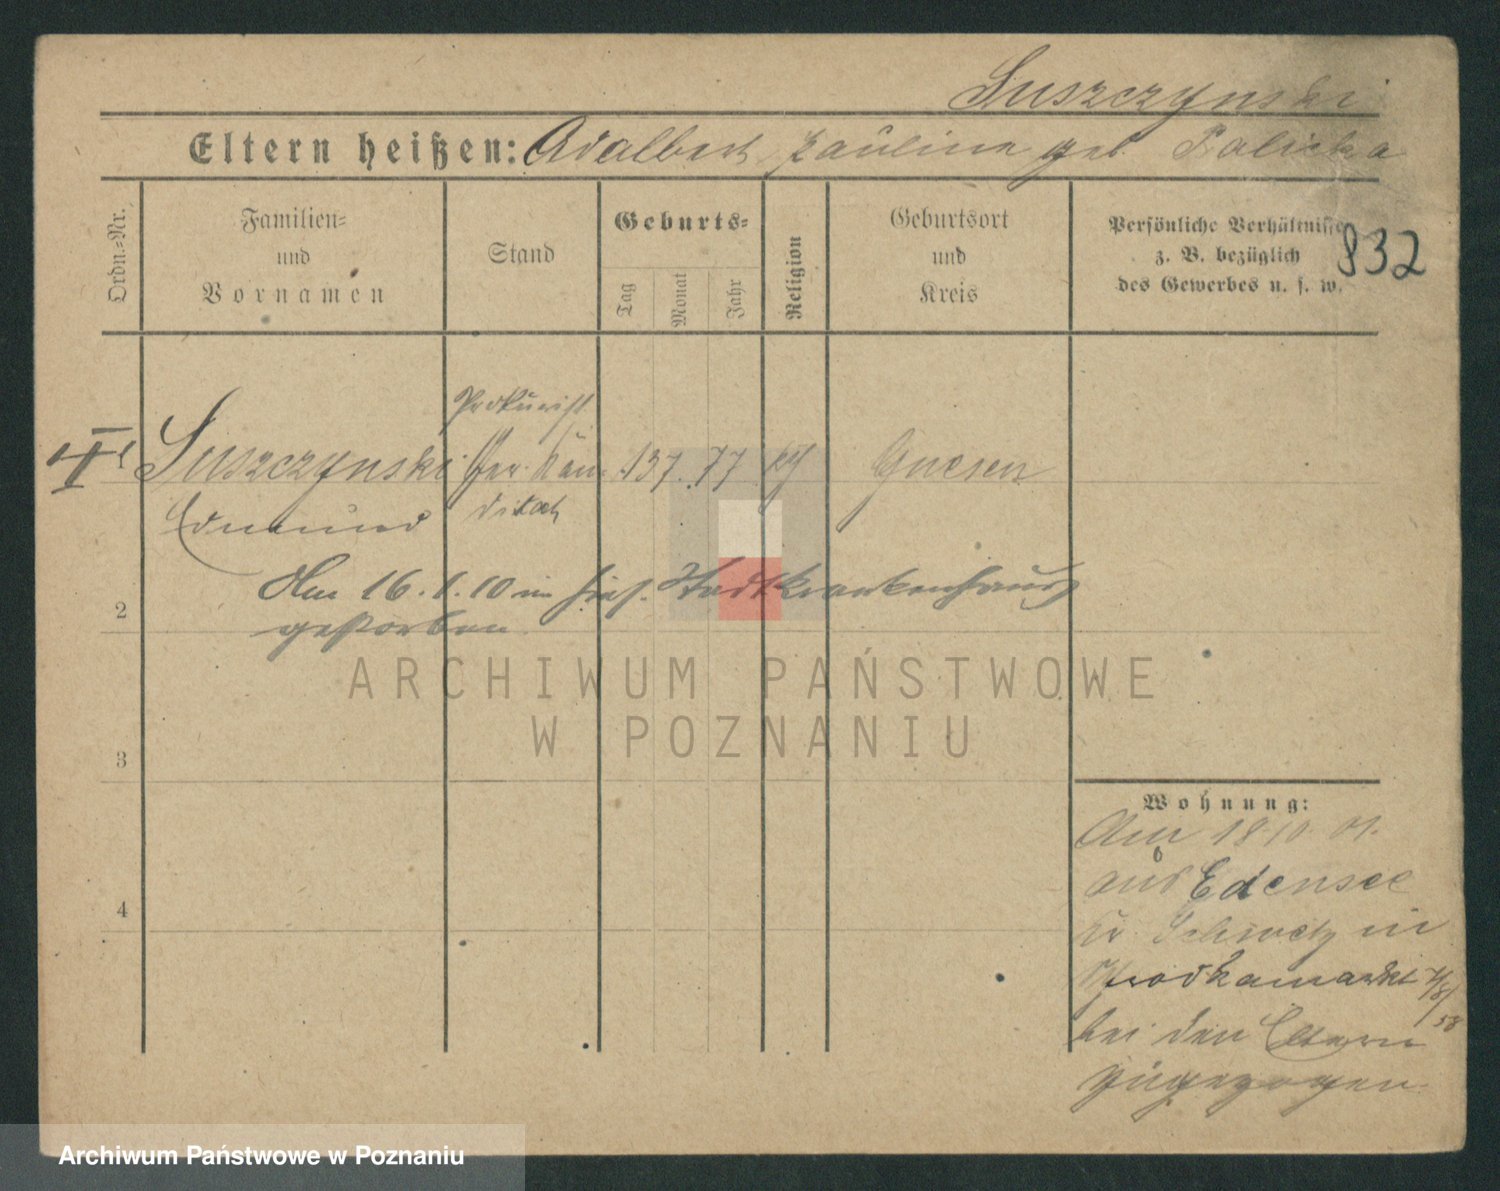 Suszczynski
Eltern heißen: Adalbert Pauline geb. Palicka
Ordn.-Nr.
Familien-
und
Vornamen
Stand
Geburts-
Tag
Monat
Jahr
Religion
Geburtsort
und
Kreis
Persönliche Verhältnisse
z. B. bezüglich
des Gewerbes u. s. w.
832
Prokurist
1 Suszczynski 13 7. 77 Gnesen
Edmund
Am 16.1.10 im hies. Stadtkrankenhaus
gestorben
2
3
4
Wohnung:
Am 18 10. 01.
aus Edensee
Kr. Schwetz in
bei den Eltern
zugezogen.
ARCHIWUM PAŃSTWOWE
W POZNANIU
Archiwum Państwowe w Poznaniu